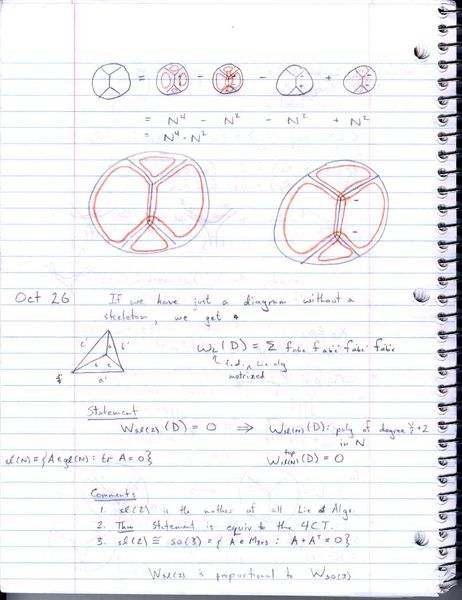 = - - +
= N⁴ - N² - N² + N²
= N⁴ - N²
Oct 26 If we have just a diagram without a
skeleton, we get
W_L(D) = Σ f_abc f_ab'c' f_a'bc' f_a'b'c
f.d. Lie alg
metrized
Statement
W_sl(2)(D) = 0 ⟹ W_sl(N)(D): poly of degree v/2+2
in N
sl(N) = {A ∈ gl(N) : tr A = 0} W^top_sl(N)(D) = 0
Comments
1. sl(2) is the mother of all Lie Algs.
2. Thm Statement is equiv to the 4CT.
3. sl(2) ≅ so(3) = {A ∈ M_3x3 : A + A^T = 0}
W_sl(2) is proportional to W_so(3)